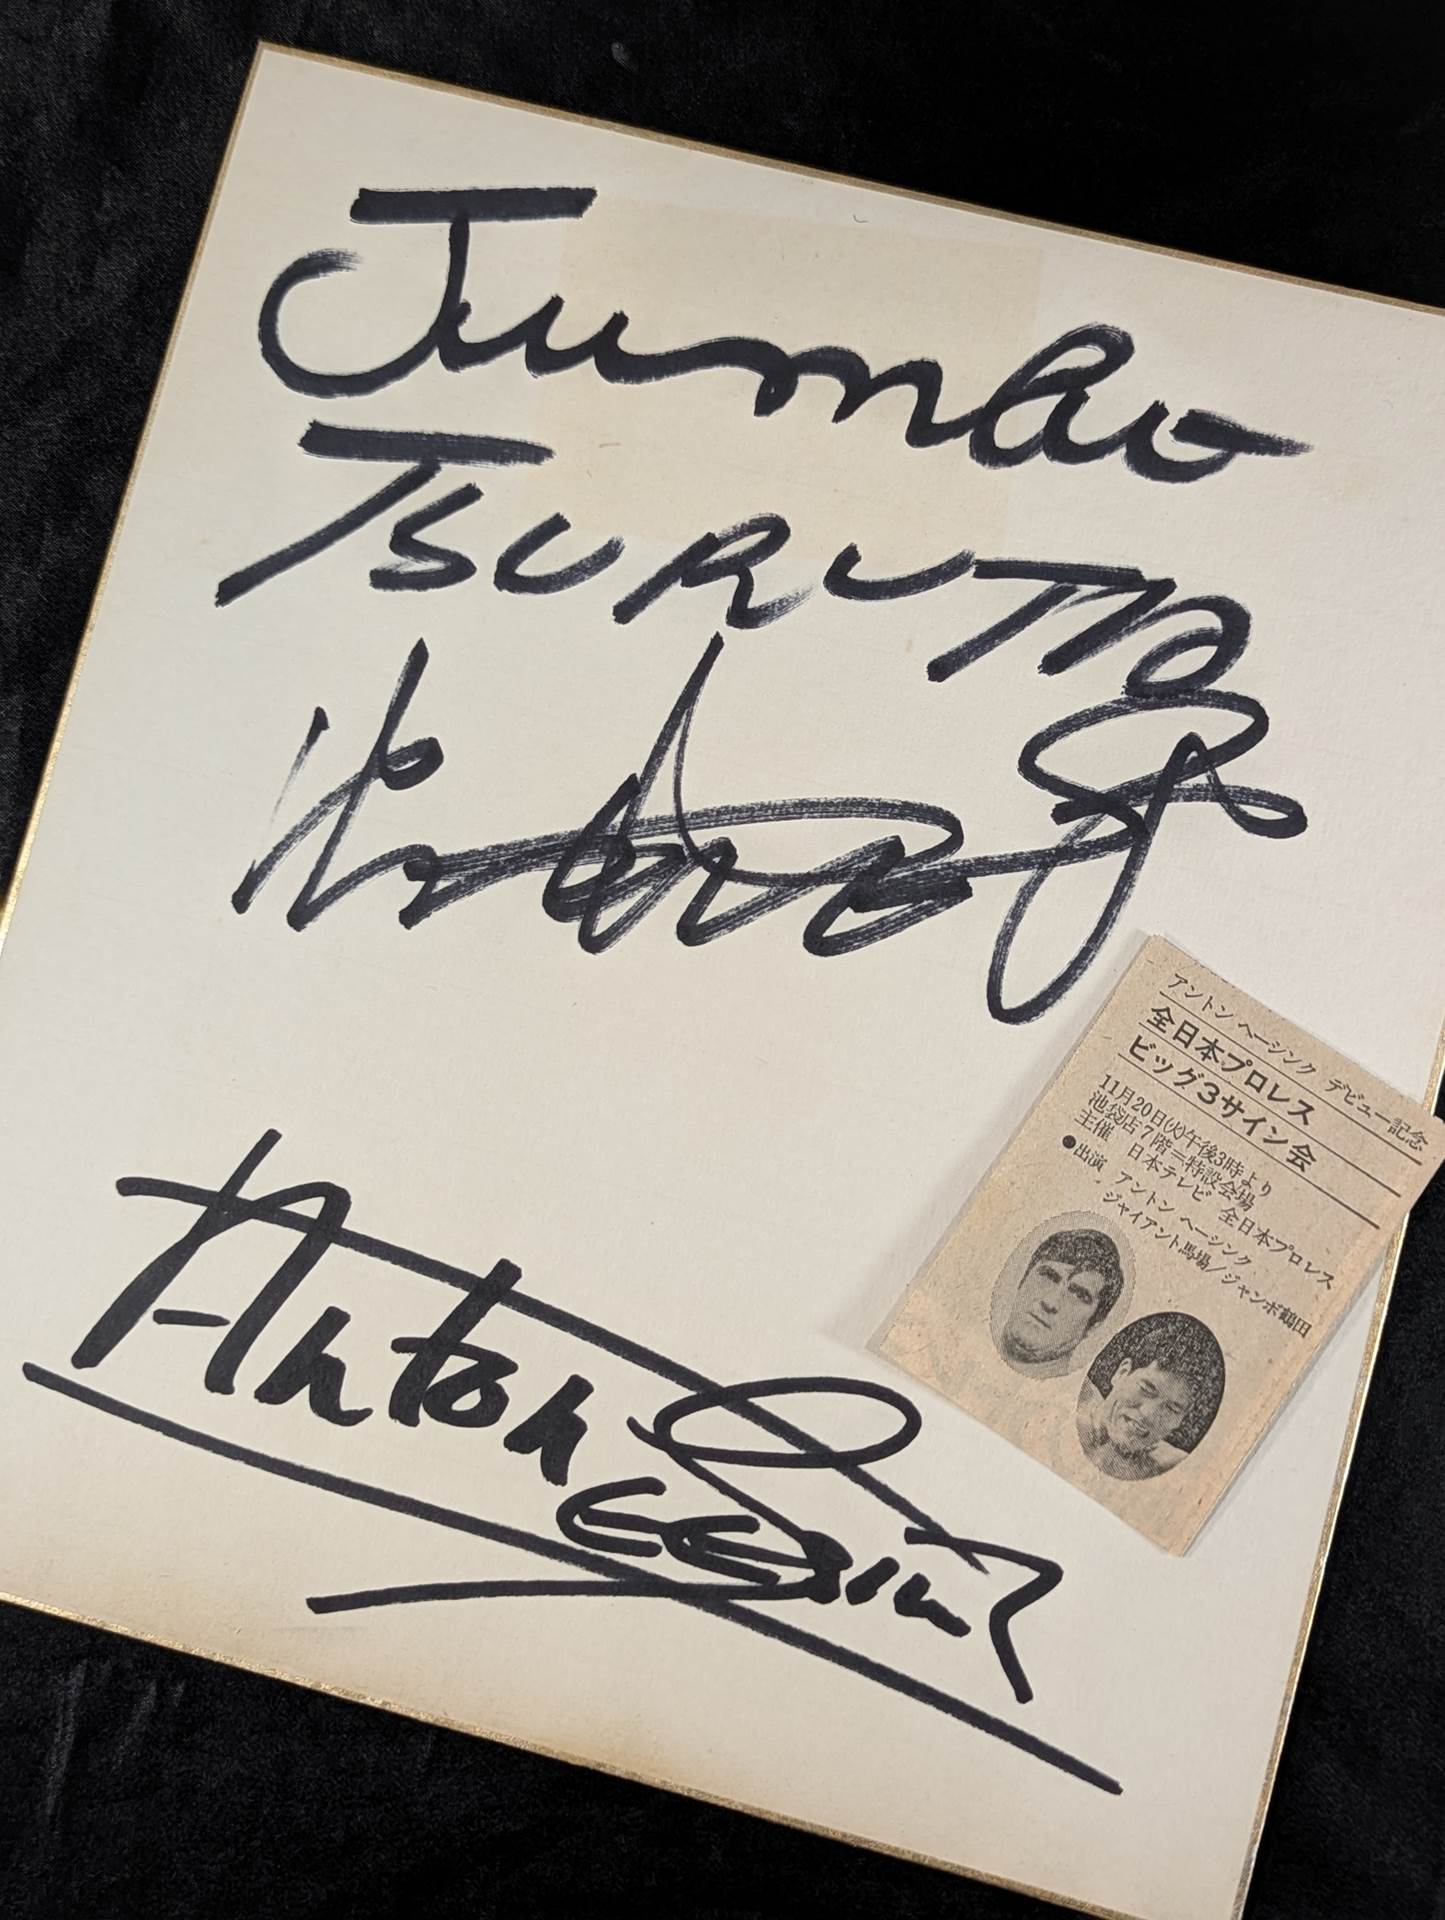 Jumbo
TSURUTA
Anton
Geesink
アントン ヘーシンク デビュー記念
全日本プロレス
ビッグ3サイン会
11月20日(火)午後3時より
池袋店7階=特設会場
主催 日本テレビ 全日本プロレス
●出演 アントン ヘーシンク
ジャイアント馬場/ジャンボ鶴田